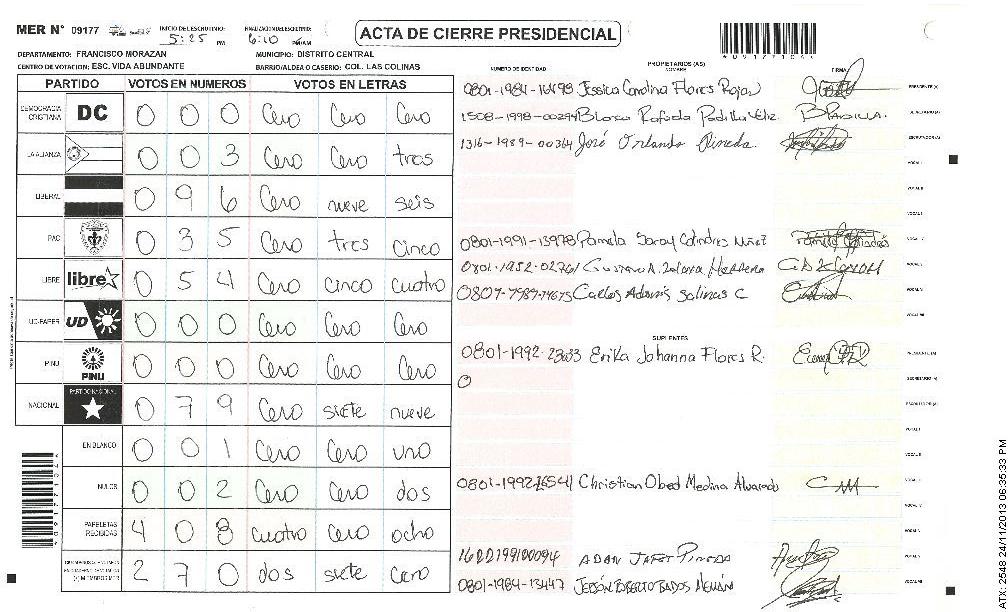 MER N° 09177 INICIO DEL ESCRUTINIO: 5:25 PM FINALIZACION DEL ESCRUTINIO: 6:10 PM/AM
ACTA DE CIERRE PRESIDENCIAL
DEPARTAMENTO: FRANCISCO MORAZAN MUNICIPIO: DISTRITO CENTRAL
CENTRO DE VOTACION: ESC. VIDA ABUNDANTE BARRIO/ALDEA O CASERIO: COL. LAS COLINAS
NUMERO DE IDENTIDAD PROPIETARIOS (AS) NOMBRE FIRMA
PARTIDO VOTOS EN NUMEROS VOTOS EN LETRAS
DEMOCRACIA CRISTIANA DC 0 0 0 Cero Cero Cero
LA ALIANZA 0 0 3 Cero Cero tres
LIBERAL 0 9 6 Cero nueve seis
PAC 0 3 5 Cero tres cinco
LIBRE libre 0 5 4 Cero cinco cuatro
UD-FAPER UD 0 0 0 Cero Cero Cero
PINU PINU 0 0 0 Cero Cero Cero
NACIONAL PARTIDO NACIONAL 0 7 9 Cero siete nueve
EN BLANCO 0 0 1 Cero Cero uno
NULOS 0 0 2 Cero Cero dos
PAPELETAS RECIBIDAS 4 0 8 cuatro cero ocho
2 7 0 dos siete cero
Jessica Carolina Flores Rojas PRESIDENTE (A)
1508-1998-00294 Blanca Rafaela Padilla Veliz B PADILLA. SECRETARIO (A)
1316-1989-00364 José Orlando Pineda ESCRUTADOR (A)
VOCAL I
VOCAL II
0801-1991-13978 Pamela Saray
0801-1952-02761 Gustavo A.
Carlos Adonis Salinas C
SUPLENTES
0801-1992-23633 Erika Johanna Flores R. PRESIDENTE (A)
0 SECRETARIO (A)
ESCRUTADOR (A)
VOCAL I
VOCAL II
Christian Obed Medina Alvarado CM
ADAN JAFET PINEDA
0801-1984-13447
ATX: 2548 24/11/2013 06:35:33 PM